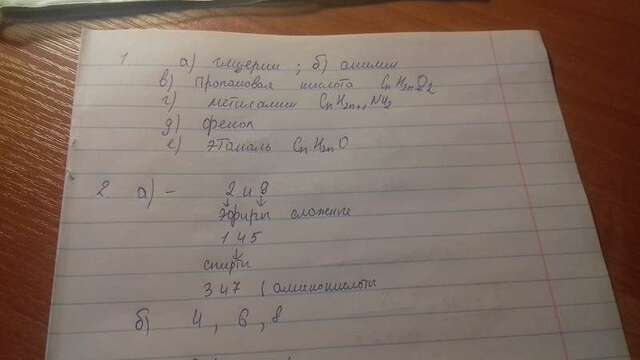 1. а) глицерин ; б) анилин
в) пропановая кислота CnH2nO2
г) метиламин CnH2n+1NH2
д) фенол
е) этаналь CnH2nO
2. а) – 2 и 9
эфиры сложные
1 и 5
спирты
3 и 7 (аминокислоты
б) 4, 6, 8